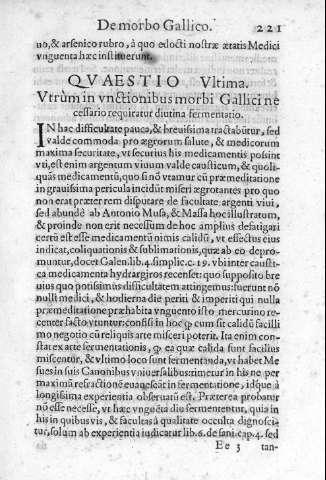 De morbo Gallico. 221
uo, & arsenico rubro, à quo edocti nostræ ætatis Medici
vnguenta hæc instituerunt.
QVAESTIO Vltima.
Vtrùm in vnctionibus morbi Gallici ne
cessario requiratur diutina fermentatio.
IN hac difficultate pauca, & breuissima tractabũtur, sed
valde commoda pro ægrorum salute, & medicorum
maxima securitate, vt securius his medicamentis possint
vti, est enim argentum viuum valde causticum, & quoli-
quãs medicamentũ, quo si nõ vtamur cũ præmeditatione
in grauissima pericula incidũt miseri ægrotantes pro quo
non erat præter rem disputare de facultate argenti viui,
sed abundè ab Antonio Musa, & Massa hoc illustratum,
& proinde non erit necessũm de hoc amplius defatigari
certũ est esse medicamentũ nimis calidũ, vt effectus eius
indicat, coliquationis & sublimationis, quæ ab eo depro-
muntur, docet Galen. lib. 4. simplic. c. 19. vbi inter causti-
ca medicamenta hydrargiros recenset: quo supposito bre
uius quo potissimùs difficultatem attingemus: fuerunt nõ
nulli medici, & hodierna die periti & imperiti qui nulla
præmeditatione præhabita vnguento isto mercurino re-
center facto vtuntur: confisi in hoc ꝙ cum sit calidũ facilli
mo negotio cũ reliquis arte misceri poterit. Ita enim con-
stat ex arte fermentationis, ꝙ ea quæ calida sunt facilius
miscentur, & vltimo loco sunt fermentanda, vt habet Me
sues in suis Canonibus vniuersalibus: timetur in his ne per
maximã refractionẽ euanescãt in fermentatione, idque à
longissima experientia obseruatũ est. Præterea probatur
nõ esse necesse, vt hæc vnguẽta diu fermententur, quia in
his in quibus vis, & facultas à qualitate occulta dignosci-
tur, solum ab experientia iudicatur lib. 6. de sani. cap. 4. sed
Ee 3 tan-